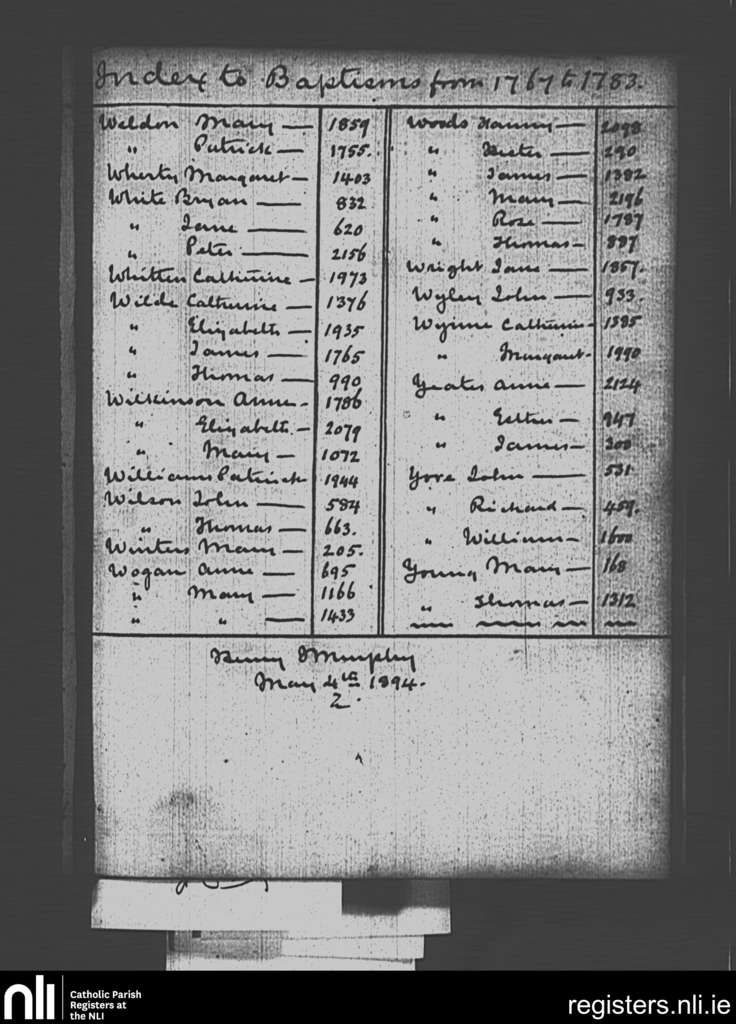 Index to Baptisms from 1767 to 1783.
Weldon Mary — 1859
" Patrick — 1755.
Wherty Margaret — 1403
White Bryan — 832
" Jane — 620
" Peter — 2156
Whitten Catherine — 1973
Wilde Catherine — 1376
" Elizabeth — 1935
" James — 1765
" Thomas — 990
Wilkinson Anne - 1786
" Elizabeth - 2079
" Mary — 1072
Williams Patrick 1944
Wilson John — 584
" Thomas — 663.
Winters Mary — 205.
Wogan Anne — 695
" Mary — 1166
" " — 1433
Woods — 2098
" — 290
" James — 1382
" Mary — 2196
" Rose — 1787
" Thomas — 887
Wright Jane — 1857.
Wyley John — 933.
Wynne Catherine - 1385
" Margaret - 1990
Yeates Anne — 2124
" Esther — 947
" James —
Yore John — 531
" Richard — 459.
" William — 1600
Young Mary — 168
" Thomas — 1312
Henry Murphy
May 4th 1894.
2.
nli
Catholic Parish
Registers at
the NLI
registers.nli.ie